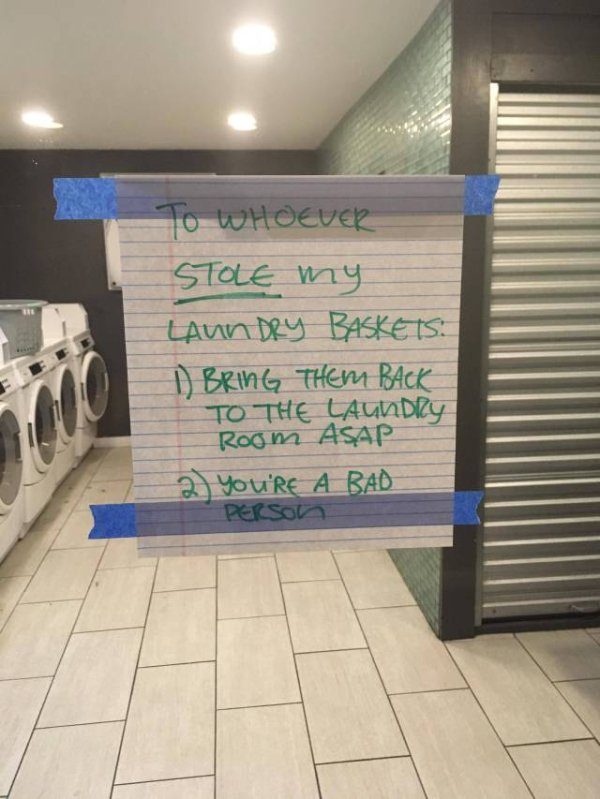 TO WHOEVER
STOLE my
LAUNDRY BASKETS:
1) BRING THEM BACK
TO THE LAUNDRY
ROOM ASAP
2) YOU'RE A BAD
PERSON